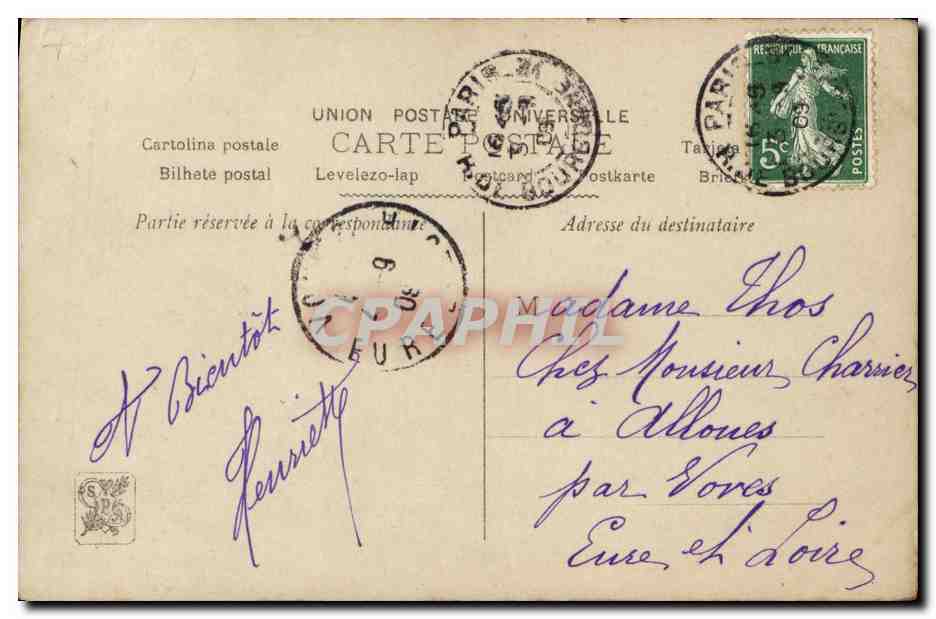 RÉPUBLIQUE FRANÇAISE
5c
POSTES
PARIS
R. DE BOURGOGNE
UNION POSTALE UNIVERSELLE
CARTE POSTALE
Cartolina postale
Bilhete postal Levelezo-lap Postcard Postkarte
Partie réservée à la correspondance
Adresse du destinataire
EURE
CPAPHIL
A Bientôt
Henriette
Madame Thos
Chez Monsieur Charrier
à Alloues
par Voves
Eure et Loire